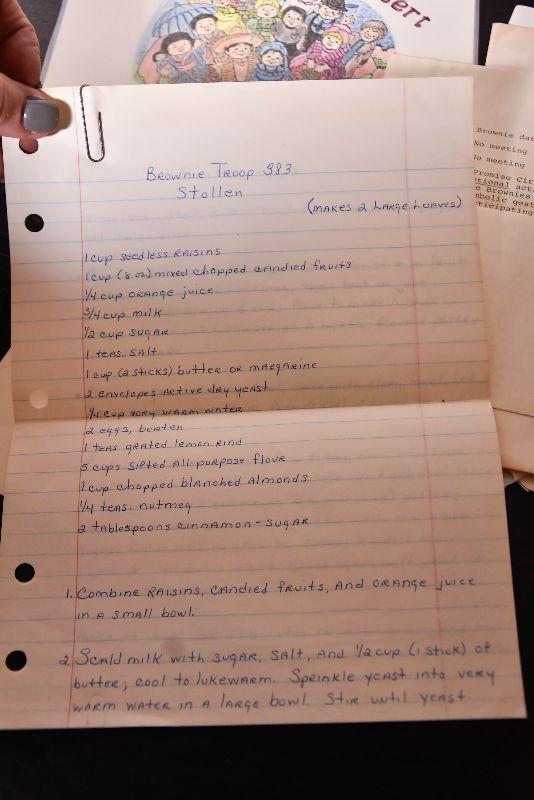 bert
Brownie Troop 383
Stollen
(Makes 2 Large Loaves)
1 cup seedless raisins
1 cup (8 oz) mixed chopped candied fruits
1/4 cup orange juice
3/4 cup milk
1/2 cup sugar
1 teas. salt
1 cup (2 sticks) butter or margarine
2 envelopes active dry yeast
1/4 cup very warm water
2 eggs, beaten
1 teas grated lemon rind
5 cups sifted all purpose flour
1 cup chopped blanched almonds
1/4 teas. nutmeg
2 tablespoons cinnamon-sugar
1. Combine raisins, candied fruits, and orange juice
in a small bowl.
2. Scald milk with sugar, salt, and 1/2 cup (1 stick) of
butter; cool to lukewarm. Sprinkle yeast into very
warm water in a large bowl. Stir until yeast
Brownie dat
No meeting
No meeting
Promise Cir
tional act
o Brownies
mbolic gest
ticipating